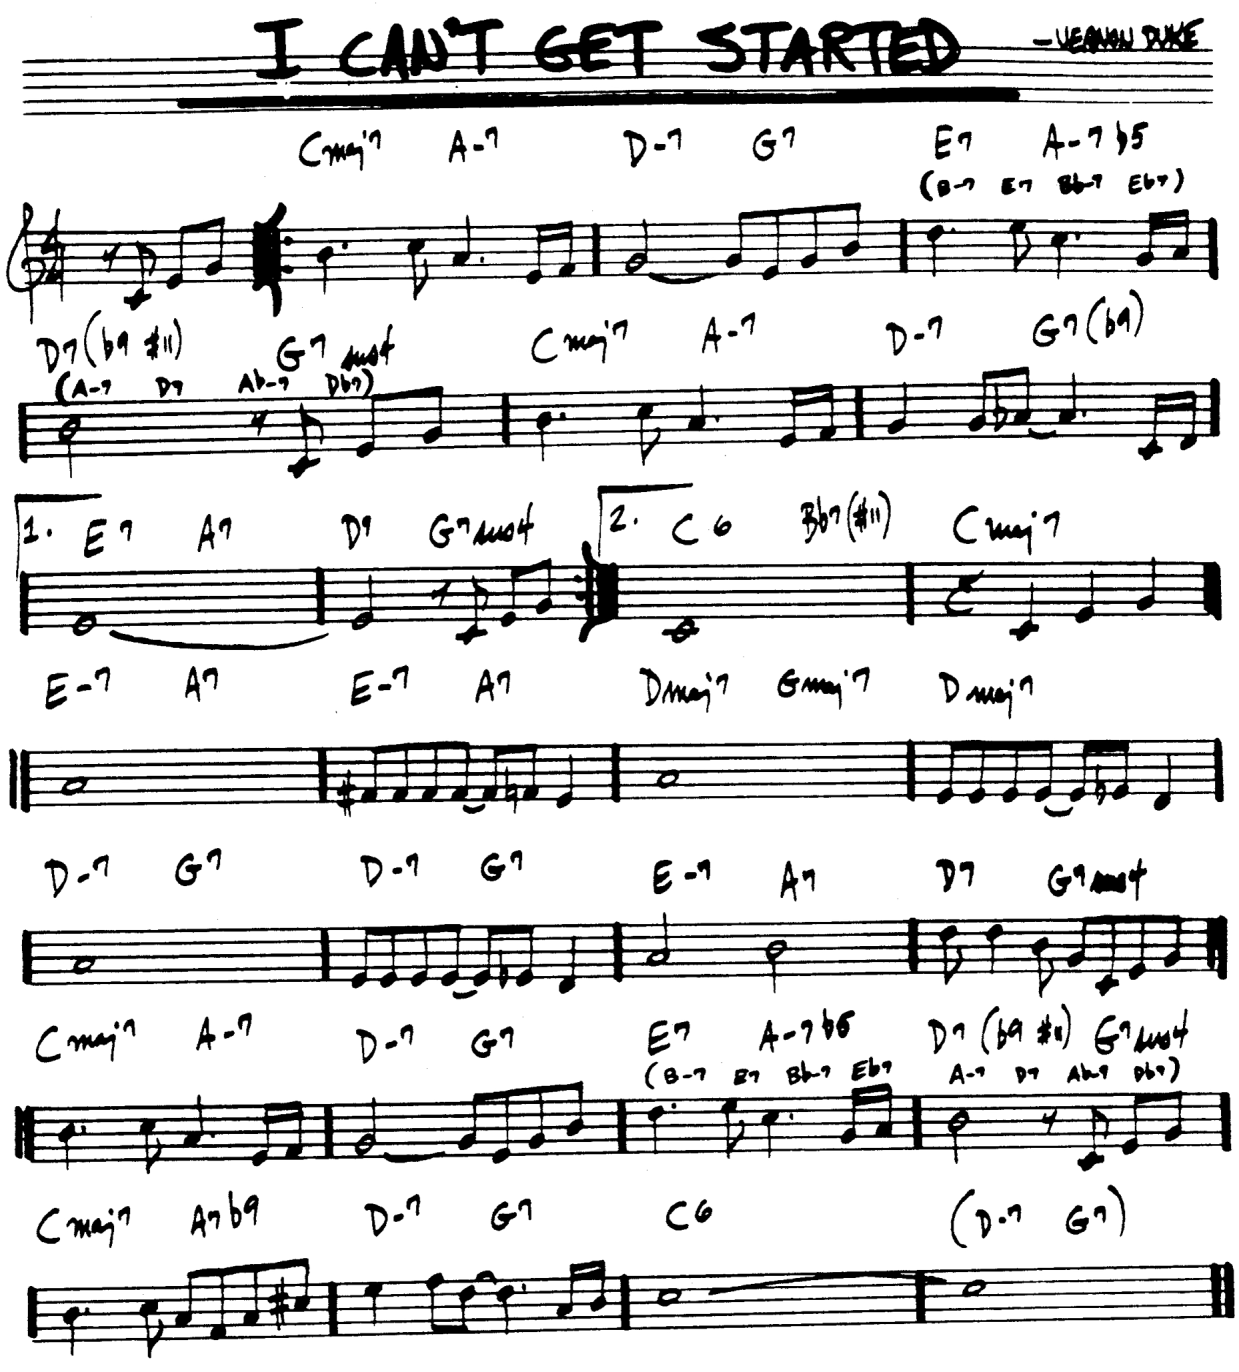 I CAN'T GET STARTED
- VERNON DUKE
Cmaj7 A-7 D-7 G7 E7 A-7b5
(B-7 E7 Bb-7 Eb7)
4
4
D7(b9 #11) G7sus4 Cmaj7 A-7 D-7 G7(b9)
(A-7 D7 Ab-7 Db7)
1. E7 A7 D7 G7sus4 2. C6 Bb7(#11) Cmaj7
E-7 A7 E-7 A7 Dmaj7 Gmaj7 Dmaj7
D-7 G7 D-7 G7 E-7 A7 D7 G7sus4
Cmaj7 A-7 D-7 G7 E7 A-7b5 D7(b9 #11) G7sus4
(B-7 E7 Bb-7 Eb7 A-7 D7 Ab-7 Db7)
Cmaj7 A7b9 D-7 G7 C6 (D-7 G7)